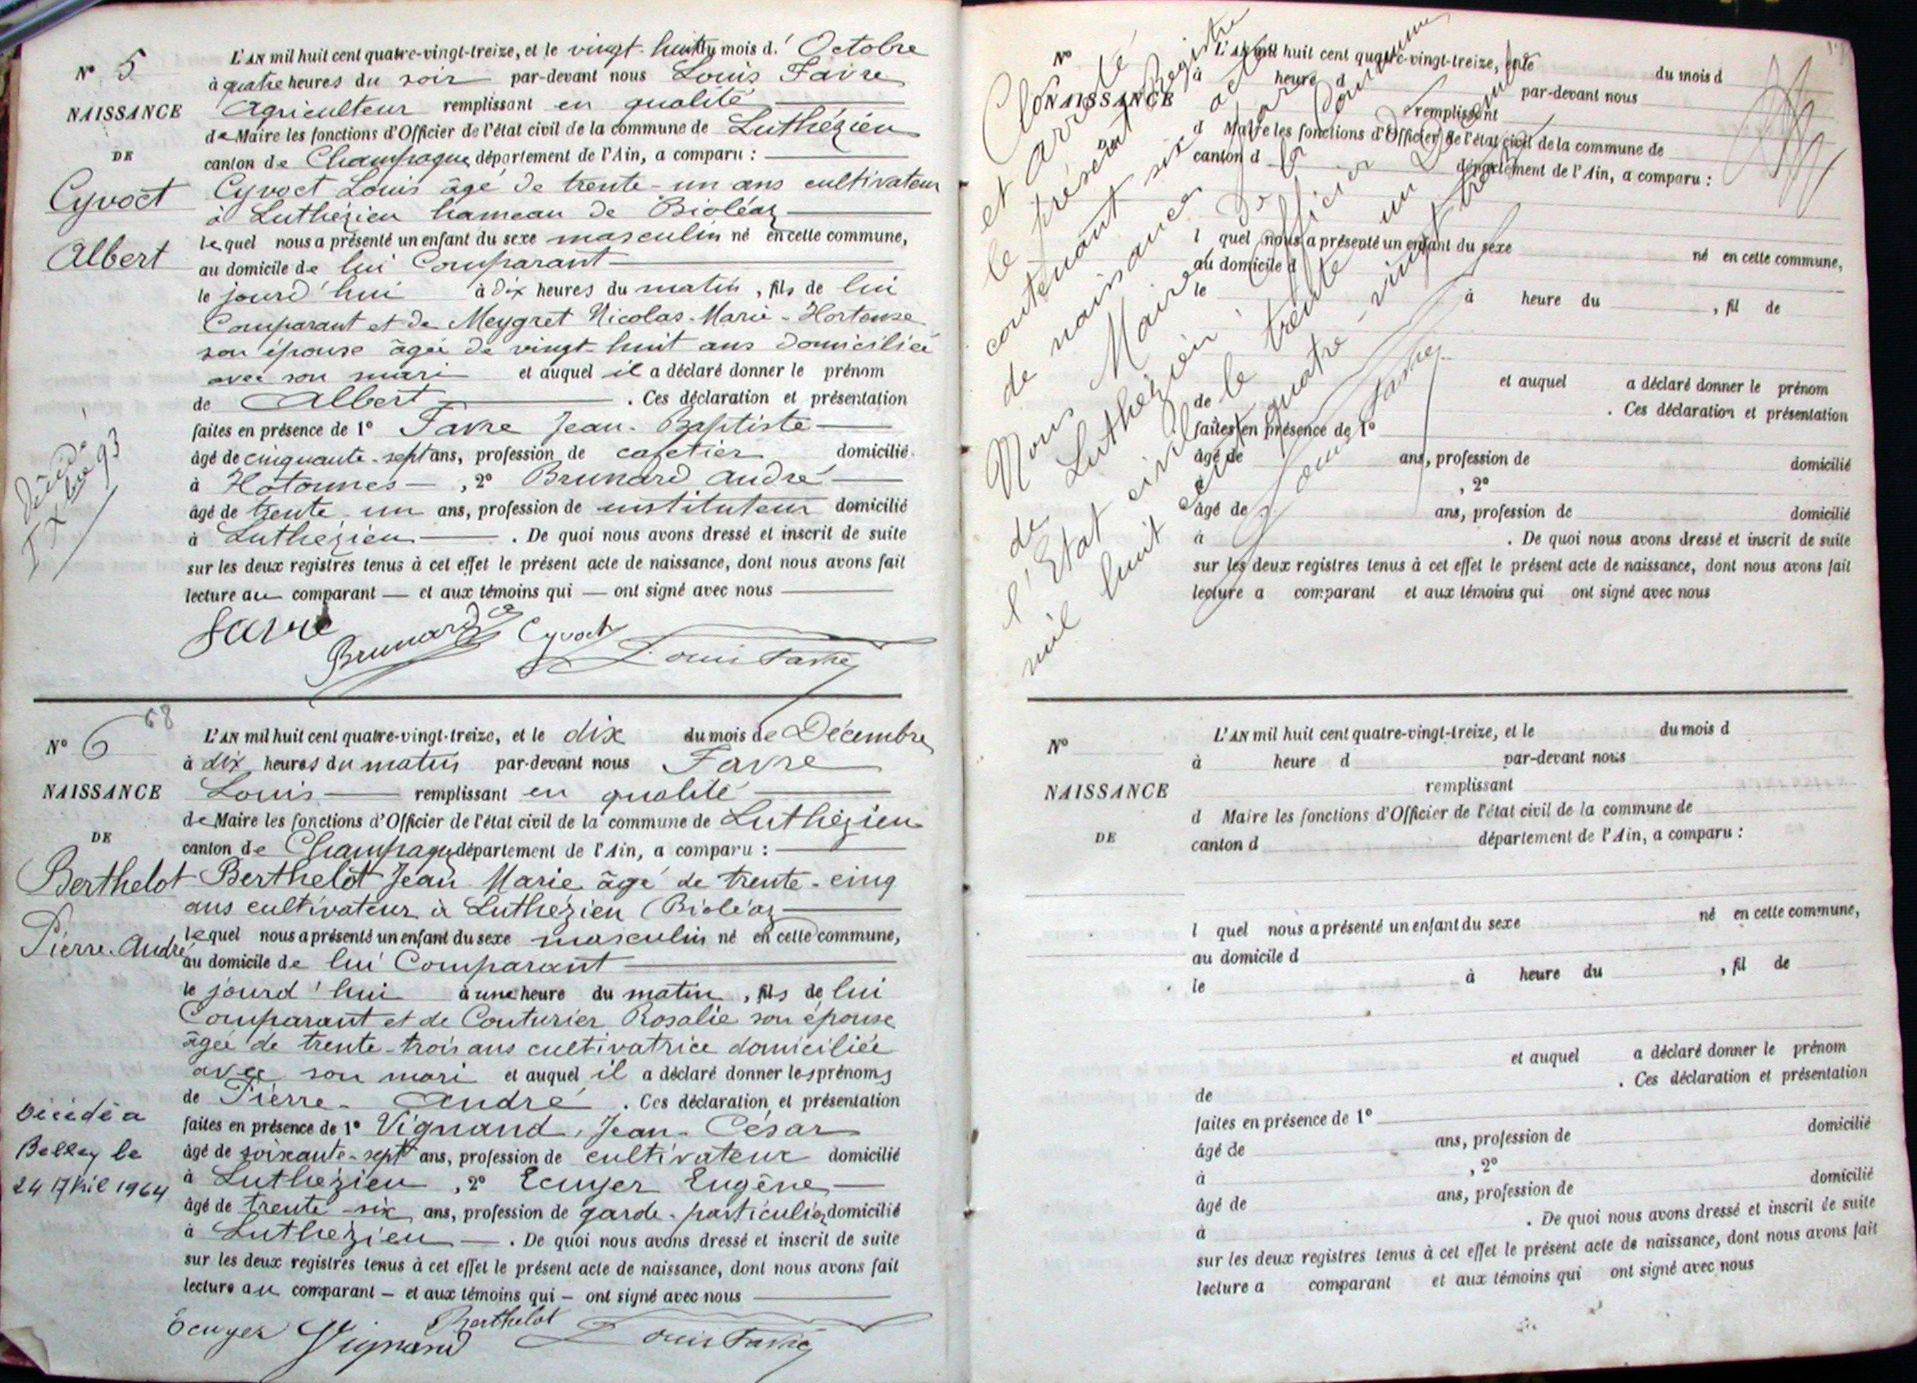 N° 5
NAISSANCE
DE
Cyvoct
Albert
décédé
93
L'AN mil huit cent quatre-vingt-treize, et le vingt-huit du mois d' Octobre
à quatre heures du soir par-devant nous Louis Favre
Agriculteur remplissant en qualité
de Maire les fonctions d'Officier de l'état civil de la commune de Luthézieu
canton de Champagne, département de l'Ain, a comparu :
Cyvoct Louis âgé de trente-un ans cultivateur
à Luthézieu hameau de Bioléaz
lequel nous a présenté un enfant du sexe masculin né en cette commune,
au domicile de lui Comparant
le jourd'hui à dix heures du matin, fils de lui
Comparant et de Meygret Nicolas-Marie-Hortense
son épouse âgée de vingt-huit ans domiciliée
avec son mari et auquel il a déclaré donner le prénom
de Albert . Ces déclaration et présentation
faites en présence de 1° Favre Jean-Baptiste
âgé de cinquante-sept ans, profession de cafetier domicilié
à Hotonnes , 2° Brunard André
âgé de trente un ans, profession de instituteur domicilié
à Luthézieu . De quoi nous avons dressé et inscrit de suite
sur les deux registres tenus à cet effet le présent acte de naissance, dont nous avons fait
lecture au comparant et aux témoins qui ont signé avec nous
Favre Brunard Cyvoct Louis Favre
N° 6
68
NAISSANCE
DE
Berthelot
Pierre-André
Décédé à
Belley le
24 Avril 1964
L'AN mil huit cent quatre-vingt-treize, et le dix du mois de Décembre
à dix heures du matin par-devant nous Favre
Louis remplissant en qualité
de Maire les fonctions d'Officier de l'état civil de la commune de Luthézieu
canton de Champagne département de l'Ain, a comparu :
Berthelot Jean Marie âgé de trente-cinq
ans cultivateur à Luthézieu (Bioléaz
lequel nous a présenté un enfant du sexe masculin né en cette commune,
au domicile de lui Comparant
le jourd'hui à une heure du matin, fils de lui
Comparant et de Couturier Rosalie son épouse
âgée de trente-trois ans cultivatrice domiciliée
avec son mari et auquel il a déclaré donner les prénoms
de Pierre-André . Ces déclaration et présentation
faites en présence de 1° Vignand, Jean-César
âgé de soixante-sept ans, profession de cultivateur domicilié
à Luthézieu , 2° Ecuyer Eugène
âgé de trente-six ans, profession de garde-particulier domicilié
à Luthézieu . De quoi nous avons dressé et inscrit de suite
sur les deux registres tenus à cet effet le présent acte de naissance, dont nous avons fait
lecture au comparant et aux témoins qui ont signé avec nous
Ecuyer Vignand Berthelot Louis Favre
Clos et arrêté
le présent Registre
contenant six actes
de naissances par
Nous Maire de la Commune
de Luthézieu Officier de
l'Etat civil le trente un Décembre
mil huit cent quatre-vingt treize
Louis Favre
N°
NAISSANCE
L'AN mil huit cent quatre-vingt-treize, et le du mois d
à heure d par-devant nous
remplissant
d Maire les fonctions d'Officier de l'état civil de la commune de
canton d département de l'Ain, a comparu :
l quel nous a présenté un enfant du sexe né en cette commune,
au domicile d
le à heure du , fil de
et auquel a déclaré donner le prénom
de . Ces déclaration et présentation
faites en présence de 1°
âgé de ans, profession de domicilié
à , 2°
âgé de ans, profession de domicilié
à . De quoi nous avons dressé et inscrit de suite
sur les deux registres tenus à cet effet le présent acte de naissance, dont nous avons fait
lecture a comparant et aux témoins qui ont signé avec nous
N°
NAISSANCE
DE
L'AN mil huit cent quatre-vingt-treize, et le du mois d
à heure d par-devant nous
remplissant
d Maire les fonctions d'Officier de l'état civil de la commune de
canton d département de l'Ain, a comparu :
l quel nous a présenté un enfant du sexe né en cette commune,
au domicile d
le à heure du , fil de
et auquel a déclaré donner le prénom
de . Ces déclaration et présentation
faites en présence de 1°
âgé de ans, profession de domicilié
à , 2°
âgé de ans, profession de domicilié
à . De quoi nous avons dressé et inscrit de suite
sur les deux registres tenus à cet effet le présent acte de naissance, dont nous avons fait
lecture a comparant et aux témoins qui ont signé avec nous